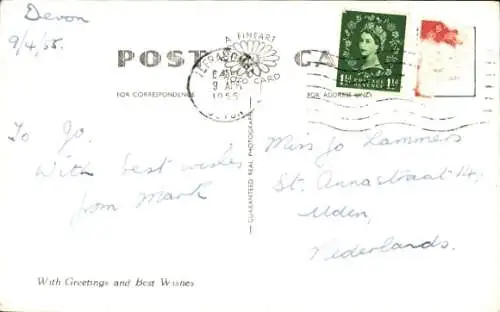 Devon
9/4/55.
POST CA
A FINEART
PHOTO CARD
FOR CORRESPONDENCE
FOR ADDRESS ONLY
1955
DEVON
1½d POSTAGE REVENUE 1½d
GUARANTEED REAL PHOTOGRAPH
To Jo.
With best wishes
from Mark
Miss Jo Lammers
St. Annastraat 14,
Uden,
Nederlands.
With Greetings and Best Wishes